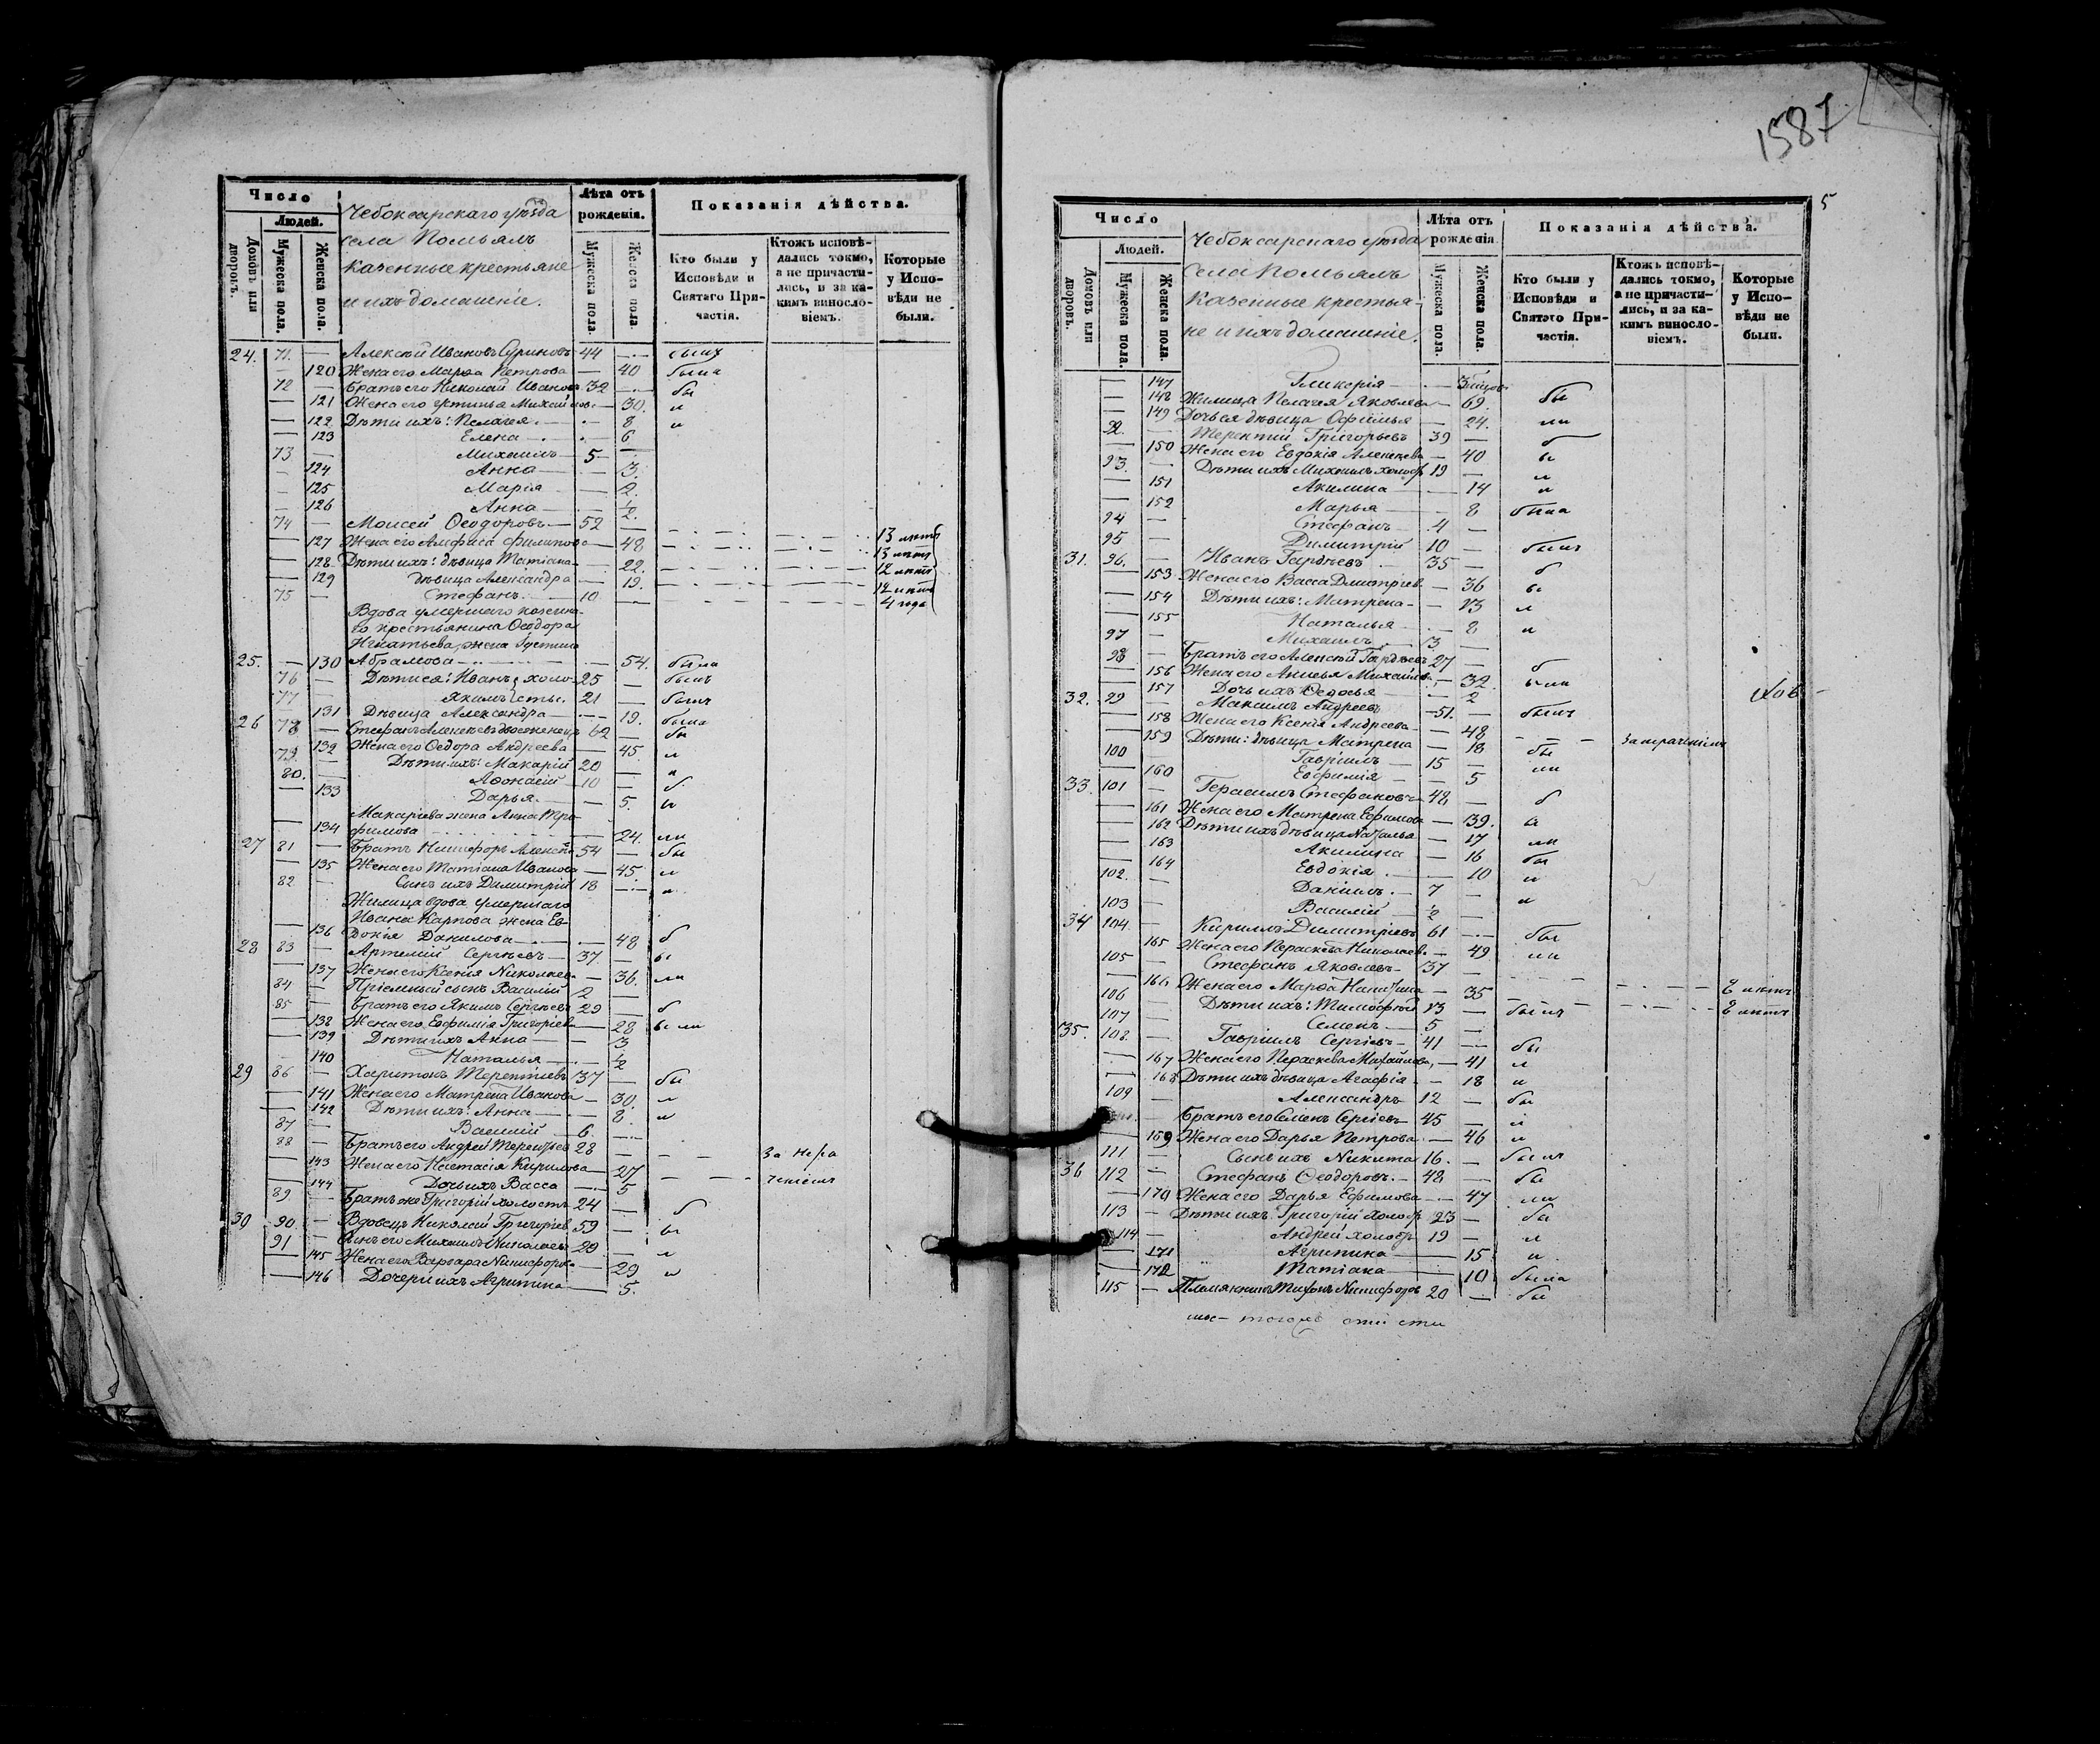 Число
Людей.
Домовъ или дворовъ.
Мужеска пола.
Женска пола.
Чебоксарскаго уѣзда
села Помьялъ
казенные крестьяне
и ихъ домашніе.
Лѣта отъ рожденія.
Мужеска пола.
Женска пола.
Показанія дѣйства.
Кто были у Исповѣди и Святаго Причастія.
Ктожъ исповѣдались токмо, а не причастились, и за какимъ винословіемъ.
Которые у Исповѣди не были.
24. 71. — Алексѣй Ивановъ 44 —
— 120 Жена его Марѳа Петрова — 40 была
72 — Братъ его Николай Ивановъ 32 — бы
— 121 Жена его Устинья Михайлова — 30. л
— 122 Дѣти ихъ: Пелагея — 8 и
— 123 Елена — 6
73 — Михаилъ 5 —
— 124 Анна — 3
— 125 Марія — 2.
— 126 Анна — ½
74 — Моисей Ѳеодоровъ 52 — 13 лѣтъ
— 127 Жена его Анфиса Филипова — 48 13 лѣтъ
— 128 Дѣти ихъ: дѣвица Татіана — 22. 12 лѣтъ
— 129 дѣвица Александра — 19. 12 лѣтъ
75 — Стефанъ 10 — 4 года
Вдова умершаго казенна-
го крестьянина Ѳеодора
Игнатьева жена Іустина
25. — 130 Абрамова — 54. была
76 — Дѣти ея: Иванъ холо- 25 — былъ
77 — Якимъ сты. 21 — былъ
— 131 Дѣвица Александра — 19. была
26 78 — Стефанъ Алексѣевъ двоеженецъ 62 — бы
— 132 Жена его Ѳедора Андреева — 45. л
79. — Дѣти ихъ: Макарій 20 — и
80. — Аѳонасій 10 — б
— 133 Дарья — 5. ы
Макаріева жена Анна Тро-
— 134 фимова — 24. ли
27 81 — Братъ Никифоръ Алексѣевъ 54 — бы
— 135 Жена его Татіана Иванова — 45. л
82 — Сынъ ихъ Димитрій 18 — и
Жилица вдова умершаго
Ивана Карпова жена Ев-
— 136 докія Данилова — 48 б
28 83 — Артемій Сергѣевъ 37 — ы
— 137 Жена его Ксенія Николаева — 36. ли
84 — Пріемный сынъ Василій 2 —
85 — Братъ его Якимъ Сергѣевъ 29 — б
— 138 Жена его Евфимія Григоріева — 28 ыли
— 139 Дѣти ихъ Анна — 3
— 140 Наталья — ½
29 86 — Харитонъ Терентіевъ 37 — бы
— 141 Жена его Матрена Иванова — 30. л
— 142 Дѣти ихъ: Анна — 8. и
87 — Василій 6. —
88 — Братъ его Андрей Терентіевъ 28 — За нера
— 143 Жена его Настасія Кирилова — 27
— 144 Дочь ихъ Васса — 5
89 — Братъ же Григорій холостъ 24 — б
30 90 — Вдовецъ Николай Григоріевъ 59 — ы
91 — Сынъ его Михаилъ Николаевъ 29 — л
— 145 Жена его Варвара Никифорова — 29 и
— 146 Дочери ихъ Агрипина — 5.
1587
5
Число
Людей.
Домовъ или дворовъ.
Мужеска пола.
Женска пола.
Чебоксарскаго уѣзда
села Помьялъ
казенные крестья-
не и ихъ домашніе.
Лѣта отъ рожденія
Мужеска пола.
Женска пола.
Показанія дѣйства.
Кто были у Исповѣди и Святаго Причастія.
Ктожъ исповѣдались токмо, а не причастились, и за какимъ винословіемъ.
Которые у Исповѣди не были.
— 147 Гликерія —
— 148 Жилица Пелагея Яковлева — 69. бы
— 149 Дочь ея дѣвица Офимья — 24. ли
92. — Терентій Григорьевъ 39 — б
— 150 Жена его Евдокія Алексѣева — 40 ы
93. — Дѣти ихъ Михаилъ холост 19 — л
— 151 Акилина — 14 и
— 152 Марья — 8 была
94 — Стефанъ 4 —
95 — Димитрій 10 — былъ
31. 96. — Иванъ Гордѣевъ 35 — б
— 153 Жена его Васса Дмитріев — 36 ы
— 154 Дѣти ихъ: Матрена — 13 л
— 155 Наталья — 8 и
97 — Михаилъ 3 —
98 — Братъ его Алексѣй Гордѣевъ 27 — б
— 156 Жена его Анисья Михайлова — 32. ыли
— 157 Дочь ихъ Ѳедосья — 2
32. 99 — Максимъ Андреевъ 51. — былъ
— 158 Жена его Ксенія Андреева — 48
— 159 Дѣти: дѣвица Матрена — 18 бы
100 — Гавріилъ 15 — ли
— 160 Евфимія — 5
33. 101 — Герасимъ Стефановъ 48 — б
— 161 Жена его Матрена Ефимова — 39. ы
— 162 Дѣти ихъ дѣвица Наталья — 17 ли
— 163 Акилина — 16 бы
— 164 Евдокія — 10 л
102. — Даніилъ 7 — и
103 — Василій ½ —
34 104 — Кирилъ Димитріевъ 61 — бы
— 165 Жена его Параскева Николаев. — 49 ли
105 — Стефанъ Яковлевъ 37 —
— 166 Жена его Марѳа Никитина — 35 8 лѣтъ
106 — Дѣти ихъ: Тимофѣй 13 — былъ 8 лѣтъ
107 — Семенъ 5 —
35. 108. — Гавріилъ Сергіевъ 41 — бы
— 167 Жена его Параскева Михайлова — 41 л
— 168 Дѣти ихъ дѣвица Агафія — 18 и
109 — Александръ 12 — бы
— Братъ его Семенъ Сергіевъ 45 — л
— 169 Жена его Дарья Петрова — 46 и
111 — Сынъ ихъ Никита 16. — былъ
36 112 — Стефанъ Ѳеодоровъ 48 — бы
— 170 Жена его Дарья Ефимова — 47 ли
113 — Дѣти ихъ Григорій холост 23 — бы
114 — Андрей холост 19 — л
— 171 Агрипина — 15 и
— 172 Татіана — 10 была
115 — Племянникъ Тихонъ Никифоров 20 — бы